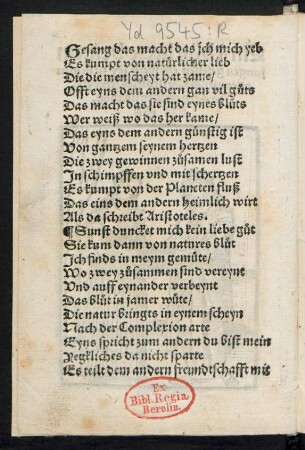 Yd 9545:R
Gesang das macht das ich mich yeb
Es kumpt von natürlicher lieb
Die die menscheyt hat zame/
Offt eyns dem andern gan vil güts
Das macht das sie sind eynes blüts
Wer weiß wo das her kame/
Das eyns dem andern günstig ist
Von gantzem seynem hertzen
Die zwey gewinnen züsamen lust
In schimpffen vnd mit schertzen
Es kumpt von der Planeten fluß
Das eins dem andern heimlich wirt
Als da schreibt Aristoteles.
¶Sunst duncket mich kein liebe güt
Sie kum dann von natures blüt
Ich finds in meym gemüte/
Wo zwey züsammen sind vereynt
Vnd auff eynander verbeynt
Das blüt in jamer wüte/
Die natur bringts in eynem scheyn
Nach der Complexion arte
Eyns spricht zum andern du bist mein
Yetzliches da nicht sparte
Es teilt dem andern freundtschafft mit
Ex
Bibl. Regia
Berolin.